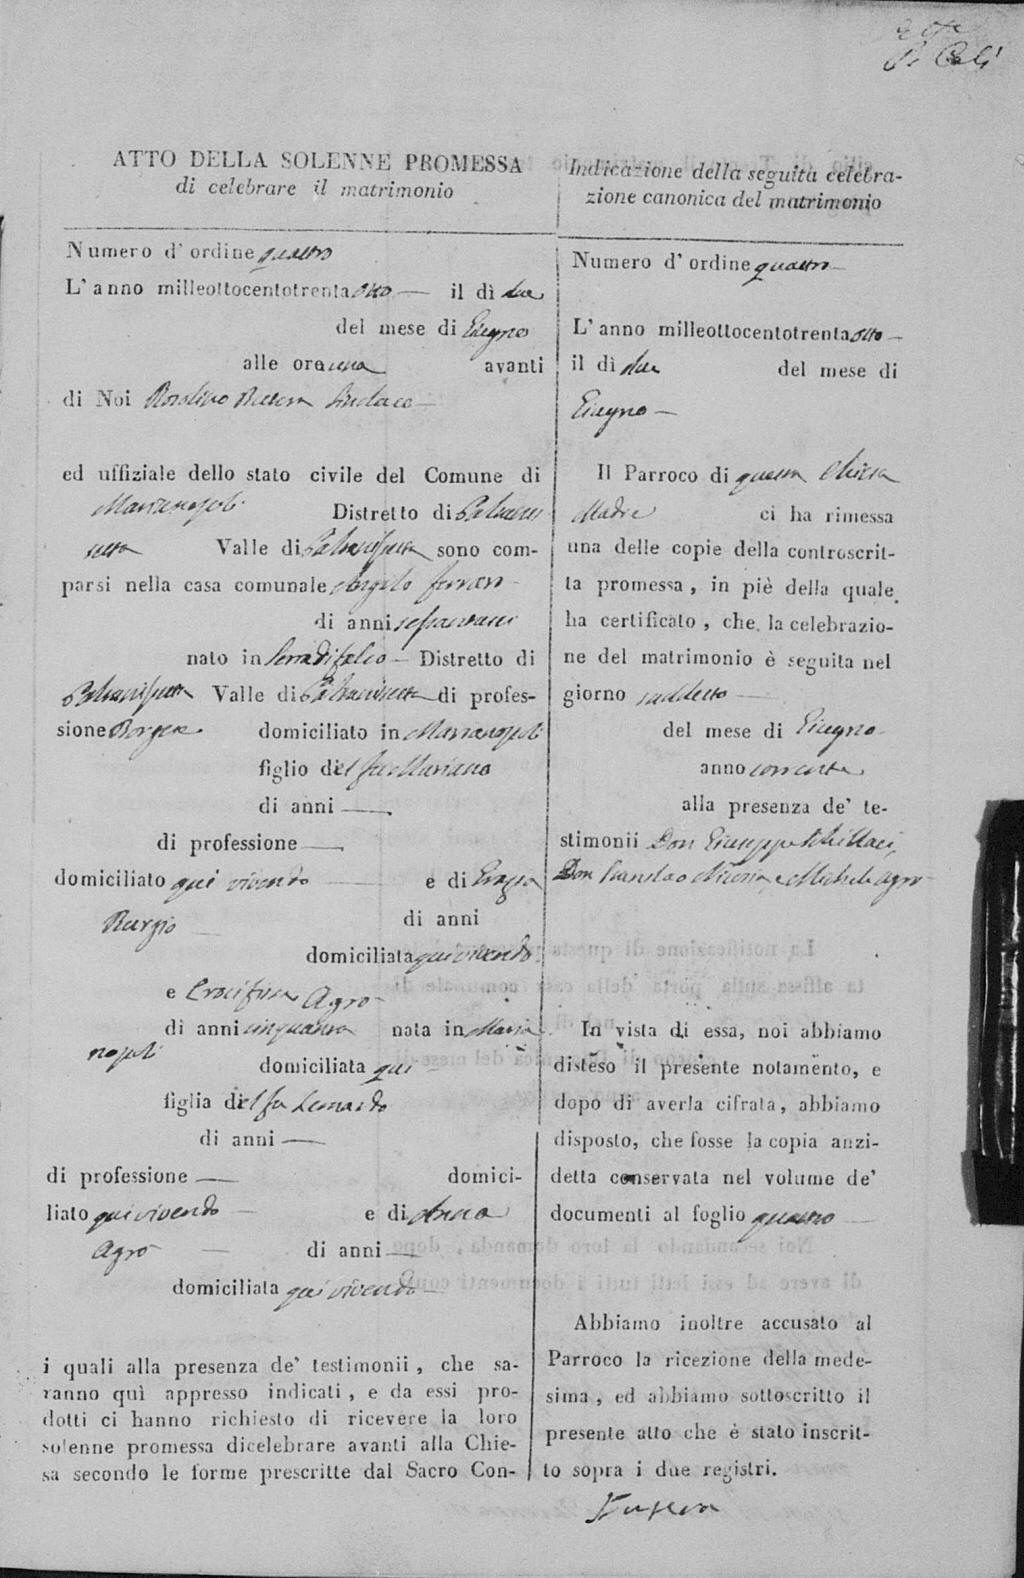 ATTO DELLA SOLENNE PROMESSA
di celebrare il matrimonio
Numero d' ordine quattro
L' anno milleottocentotrenta otto — il dì due
del mese di Giugno
alle ore una avanti
di Noi Rosolino Sindaco —
ed uffiziale dello stato civile del Comune di
Marianopoli Distretto di Caltanis
setta Valle di Caltanissetta sono com-
parsi nella casa comunale Angilo Ferraro
di anni
nato in Serradifalco — Distretto di
Caltanissetta Valle di Caltanissetta di profes-
sione Borgese domiciliato in Marianopoli
figlio del fu Mariano
di anni —
di professione —
domiciliato qui vivendo — e di Grazia
Burgio — di anni
domiciliata qui vivendo
e Crocifissa Agro —
di anni cinquanta nata in Maria
nopoli domiciliata qui —
figlia del fu Leonardo
di anni —
di professione — domici-
liato qui vivendo — e di Anna
Agro — di anni —
domiciliata qui vivendo —
i quali alla presenza de' testimonii , che sa-
ranno quì appresso indicati , e da essi pro-
dotti ci hanno richiesto di ricevere la loro
solenne promessa dicelebrare avanti alla Chie-
sa secondo le forme prescritte dal Sacro Con-
Indicazione della seguita celebra-
zione canonica del matrimonio
Numero d' ordine quattro —
L' anno milleottocentotrenta otto —
il dì due del mese di
Giugno —
Il Parroco di questa Chiesa
Madre ci ha rimessa
una delle copie della controscrit-
ta promessa , in piè della quale
ha certificato , che la celebrazio-
ne del matrimonio è seguita nel
giorno suddetto —
del mese di Giugno
anno corrente
alla presenza de' te-
stimonii Don Giuseppe Schillaci,
Don e Michele Agro
In vista di essa, noi abbiamo
disteso il presente notamento, e
dopo di averla cifrata, abbiamo
disposto, che fosse la copia anzi-
detta conservata nel volume de'
documenti al foglio quattro —
Abbiamo inoltre accusato al
Parroco la ricezione della mede-
sima , ed abbiamo sottoscritto il
presente atto che è stato inscrit-
to sopra i due registri.